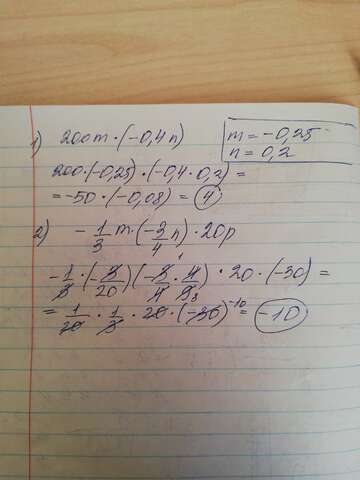 1) 200m · (-0,4n)
m = -0,25
n = 0,2
200·(-0,25) · (-0,4 · 0,2) =
= -50 · (-0,08) = 4
2) - 1/3 m · (-3/4 n) · 20p
- 1/3 · (- 3/20) (- 3/4 · 4/9) · 20 · (-30) =
= 1/20 · 1/3 · 20 · (-30) = -10